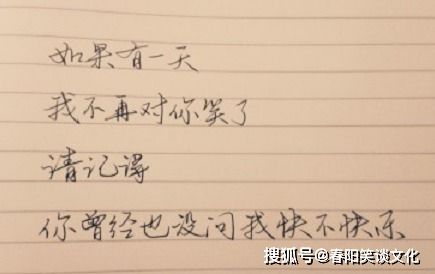 如果有一天
我不再对你笑了
请记得
你曾经也没问我快不快乐
搜狐号@春阳笑谈文化